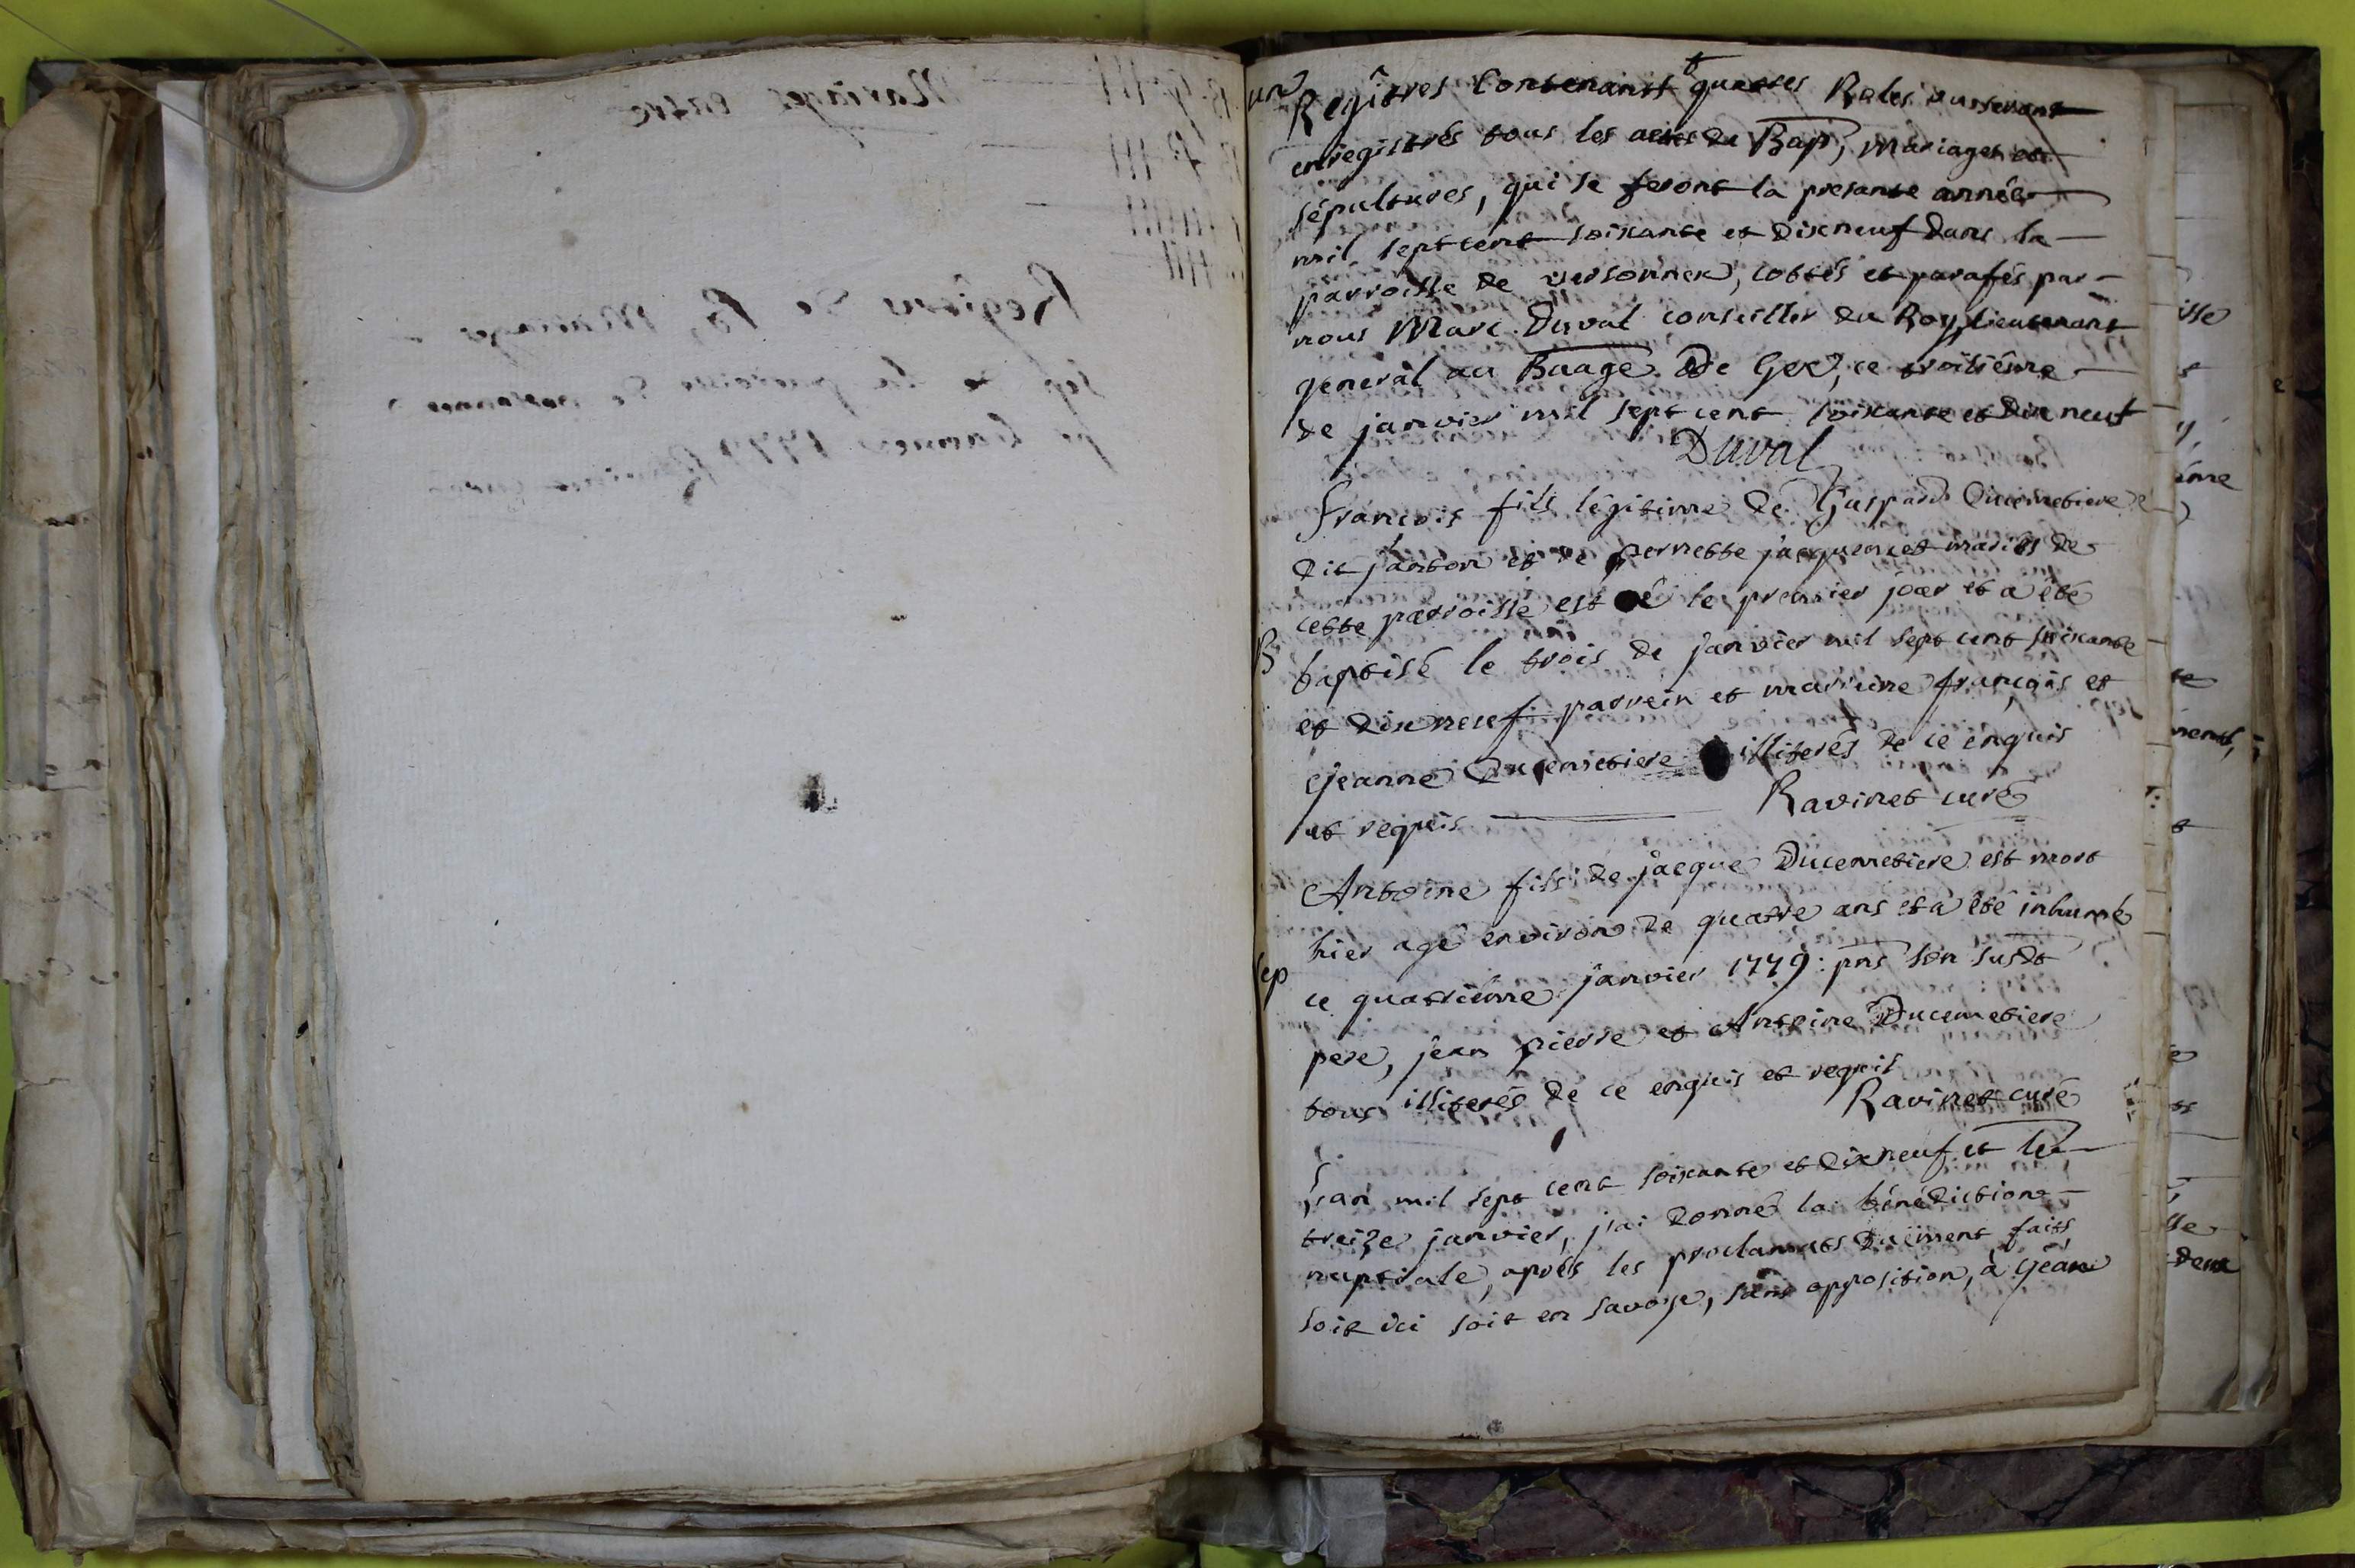 un
Regîtres Contenants quatres Roles ou seront
enregistrés tous les actes de Bap, Mariages et
sépultures, qui se feront la presante année
mil sept cent soixante et dixneuf dans la
parroisse de versonnex, cottés et parafés par
nous Marc Duval conseiller du Roy, lieutenant
general au Baage De Gex, ce troisiéme
de janvier mil sept cent soixante et dix neuf
Duval
francois fils légitime de Gaspard Ducimetiere
dit janton et de pernette jacquemet mariés de
cette parroisse est né le premier jour et a été
B
baptisé le trois de janvier mil sept cent soixante
et dix neuf parrein et marreine françois et
Jeanne Ducimetiere illiterés de ce enquis
et requis
Ravinet curé
Antoine fils de jacque Ducimetiere est mort
hier agé environ de quatre ans et a été inhumé
sep
ce quatriéme janvier 1779 : pns son susdt
pere, jean pierre et Antoine Ducimetiere
tous illiterés de ce enquis et requis
Ravinet curé
l'an mil sept cent soixante et dixneuf et le
treize janvier, j'ai donné la bénédiction
nuptiale, aprés les proclamats duëment faits
soit ici soit en savoye, sans opposition, à Jean